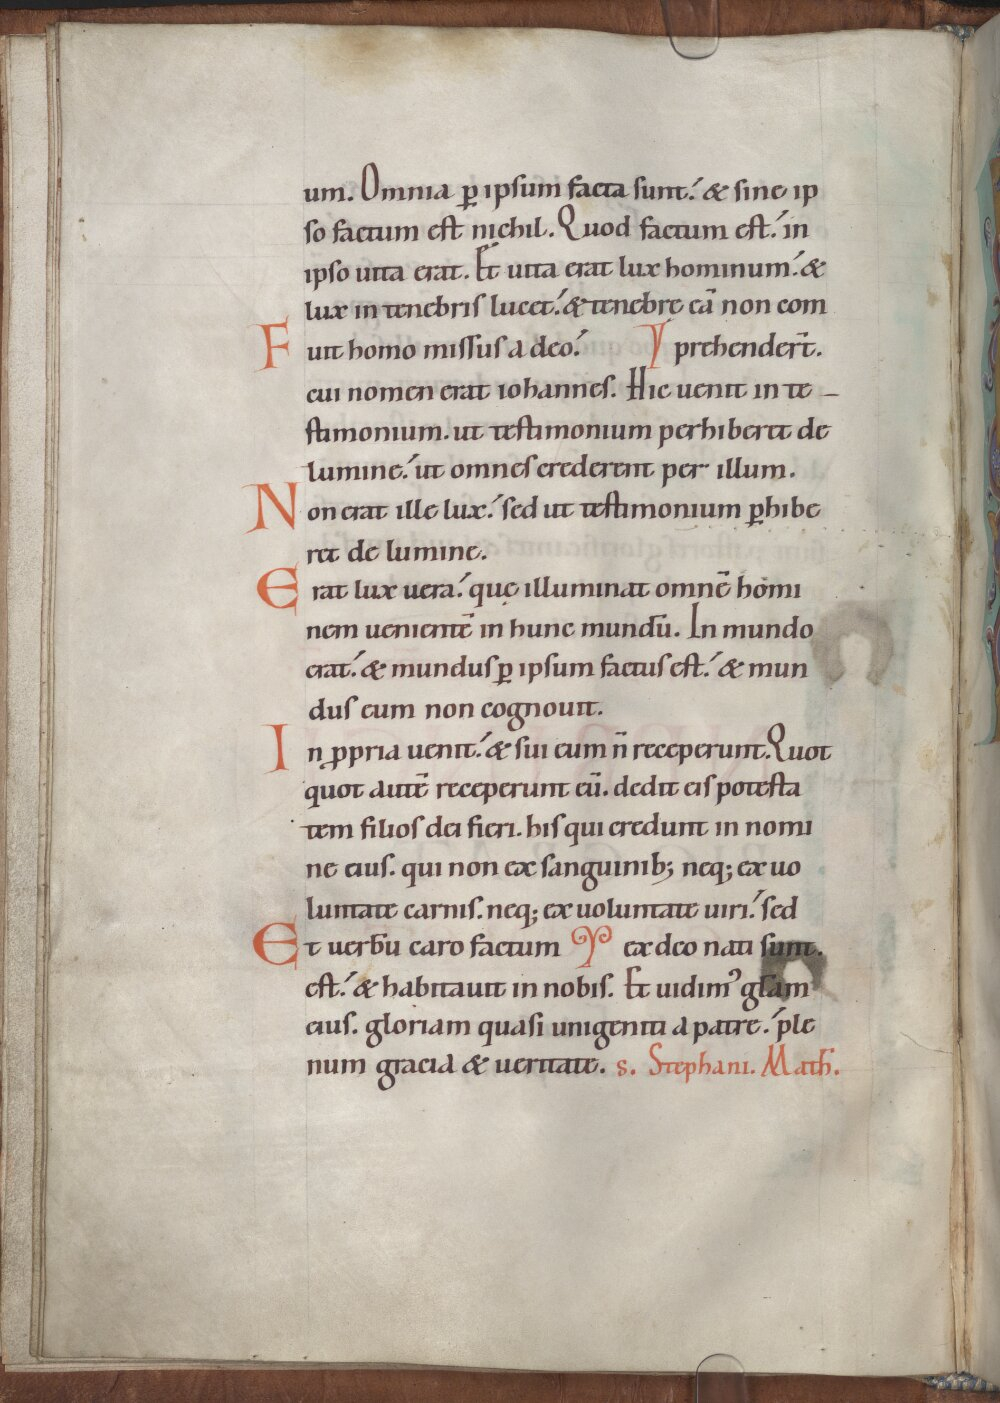 um. Omnia p̲ ipsum facta sunt. & sine ip
so factum est nichil. Quod factum est. in
ipso uita erat. Et uita erat lux hominum. &
lux in tenebris lucet. & tenebrę eā non com
Fuit homo missus a deo. prehender̄t.
cui nomen erat iohannes. Hic uenit in te-
stimonium. ut testimonium perhiberet de
lumine. ut omnes crederent per illum.
Non erat ille lux. sed ut testimonium p̲hibe
ret de lumine.
Erat lux uera. quę illuminat omnē homi
nem uenientē in hunc mundū. In mundo
erat. & mundus p̲ ipsum factus est. & mun
dus eum non cognouit.
In ꝓpria uenit. & sui eum n̄ receperunt. Quot
quot autē receperunt eū. dedit eis potesta
tem filios dei fieri. his qui credunt in nomi
ne eius. qui non ex sanguinib; neq; ex uo
luntate carnis. neq; ex uoluntate uiri. sed
Et uerbū caro factum ex deo nati sunt.
est. & habitauit in nobis. Et uidim᾿ glām
eius. gloriam quasi unigeniti a patre. ple
num gracia & ueritate. s. Stephani. Math̄.